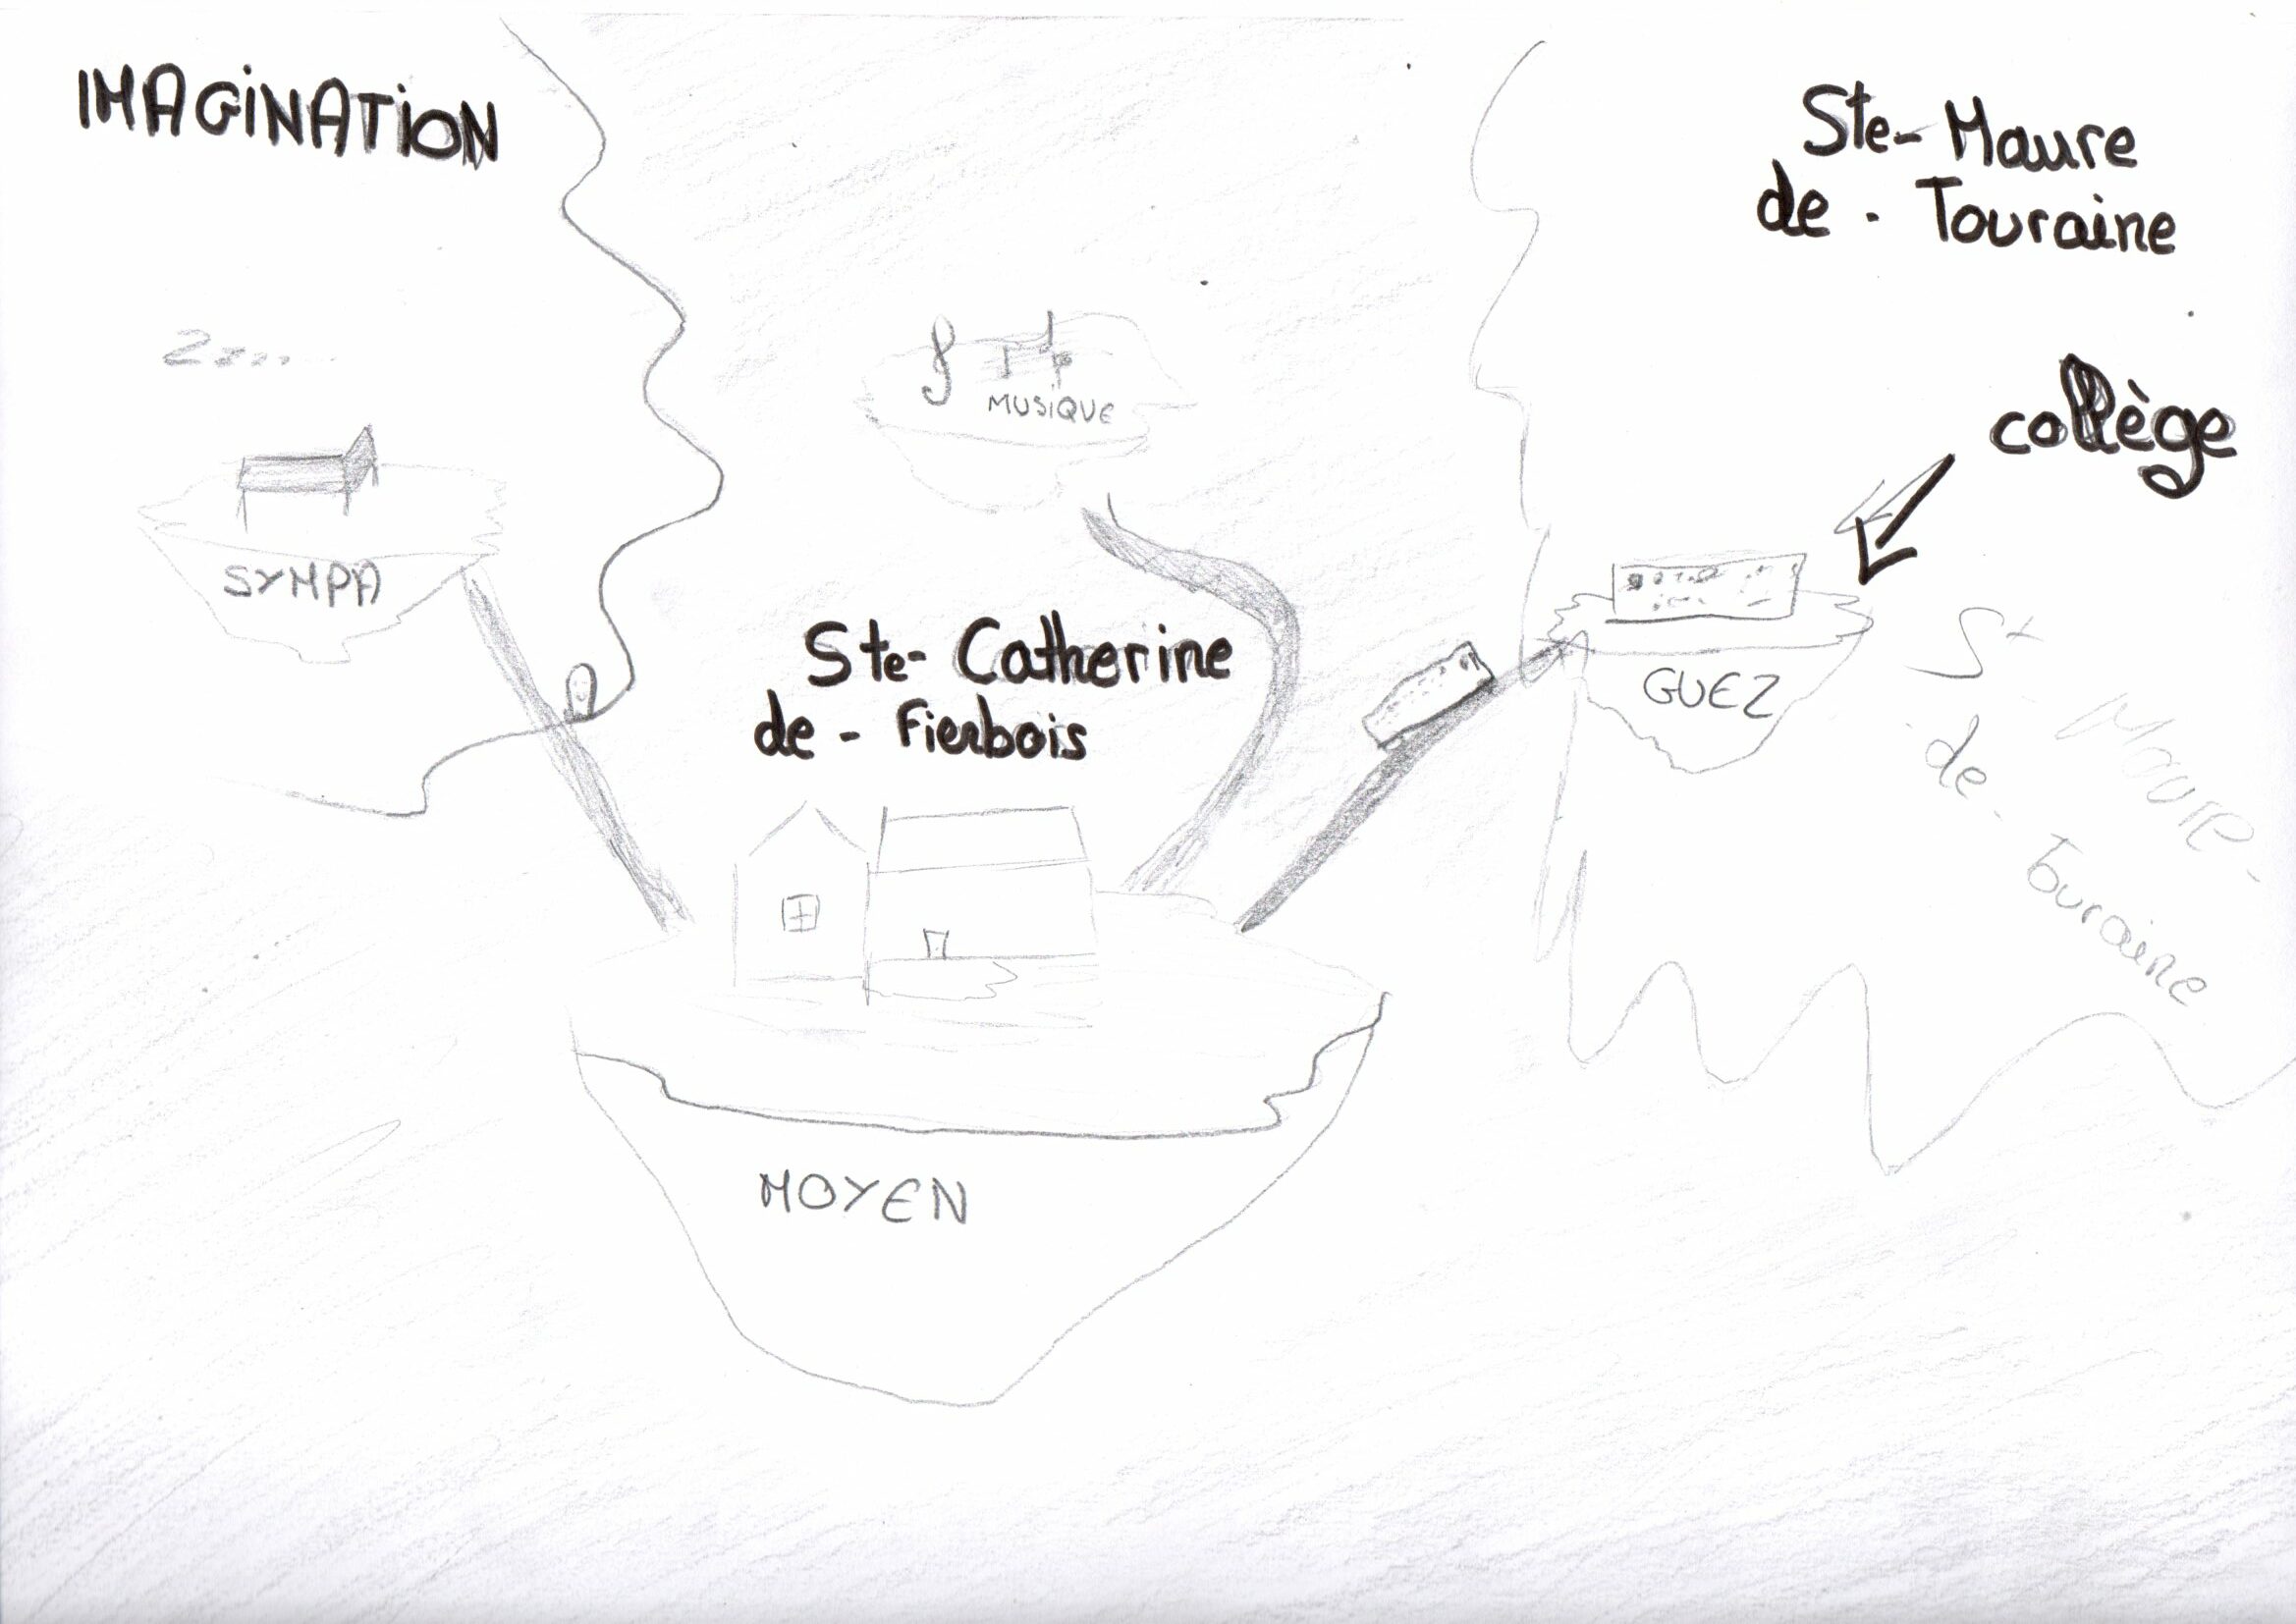 IMAGINATION
Ste-Maure
de-Touraine
Zzzz....
MUSIQUE
collège
SYMPA
Ste-Catherine
de-Fierbois
GUEZ
St
Maure-
de-
Touraine
MOYEN